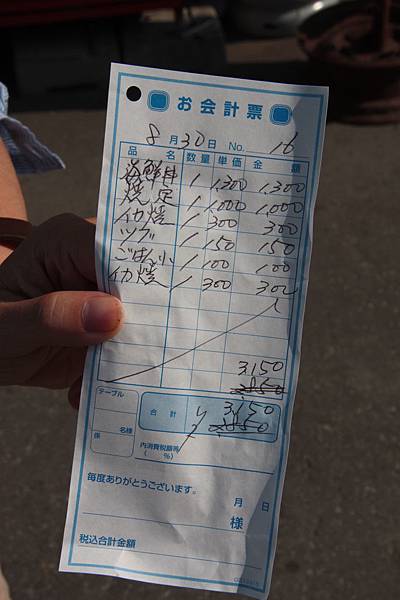 お会計票
8月30日 No. 16
品名 数量 単価 金額
海鮮丼 1 1,300 1,300
焼定 1 1,000 1,000
イカ焼 1 300 300
ツブ 1 150 150
ごはん小 1 100 100
イカ焼 1 300 300
3,150
2850
テーブル
名様
係
合計 ¥3,150
2850
内消費税額等
( %)
毎度ありがとうございます。
月 日
様
税込合計金額